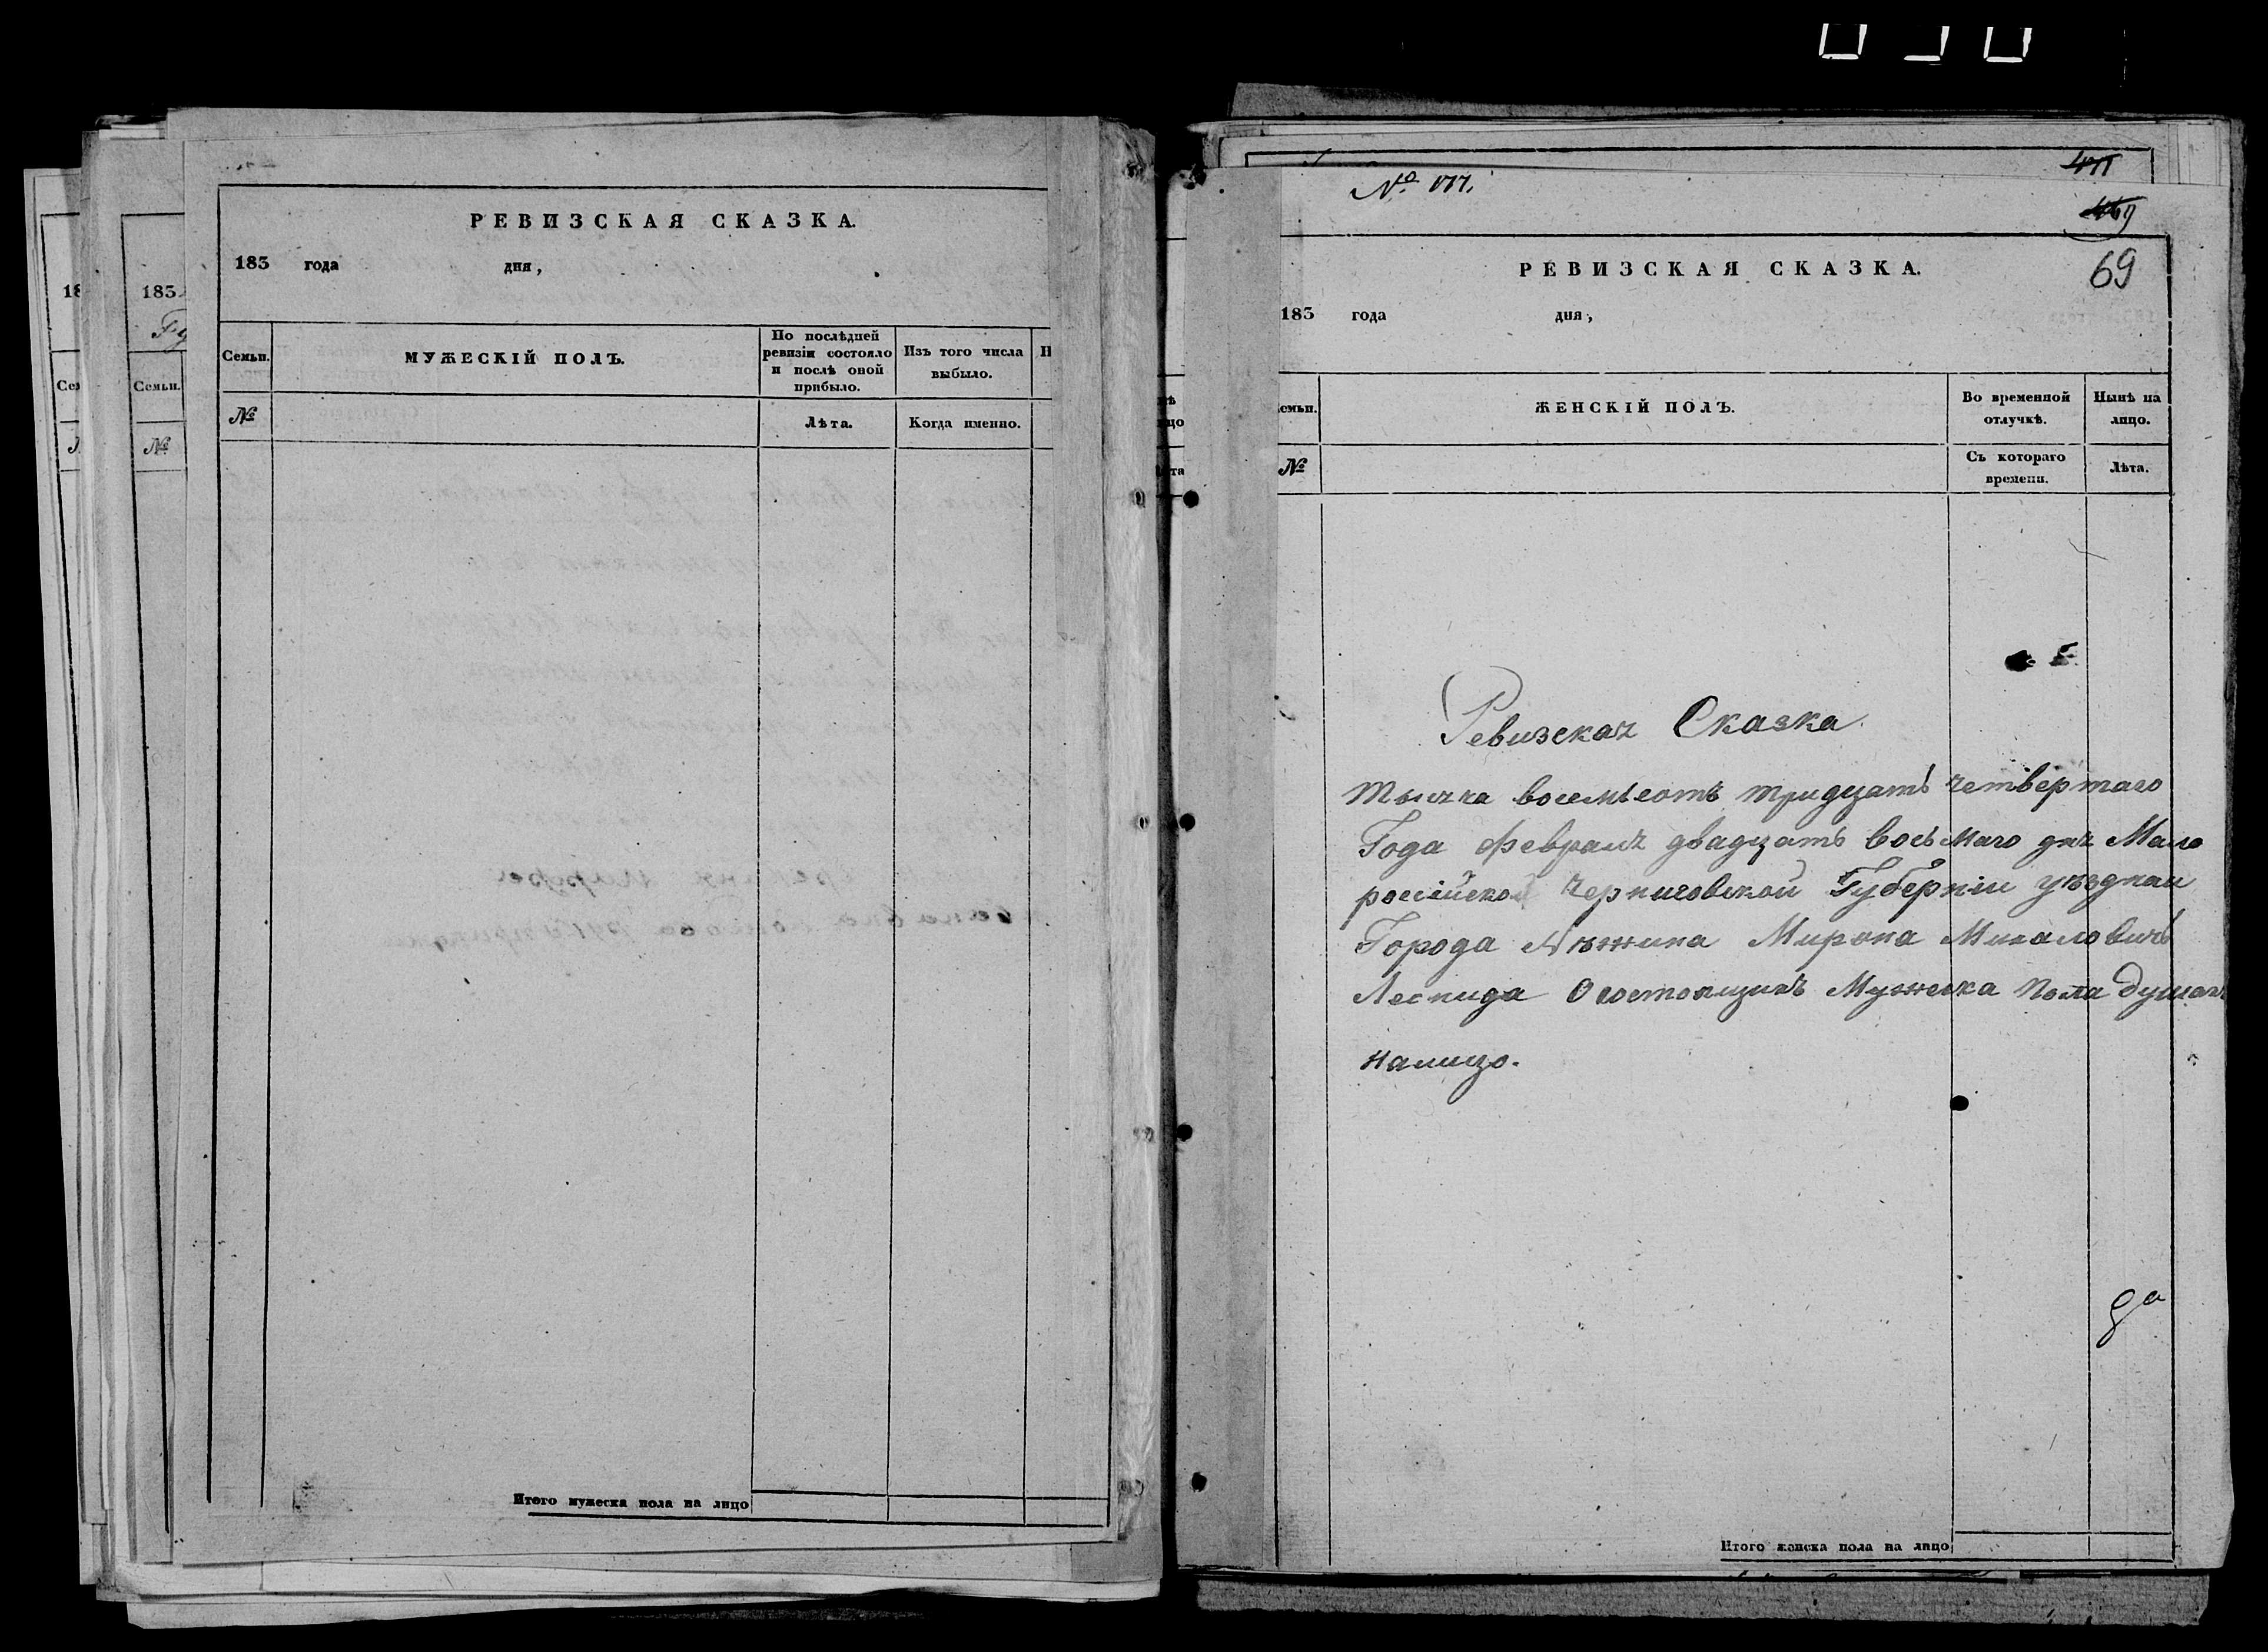 РЕВИЗСКАЯ СКАЗКА.
183 года дня,
Семьи.
МУЖЕСКІЙ ПОЛЪ.
По послѣдней
ревизіи состояло
и послѣ оной
прибыло.
Изъ того числа
выбыло.
№
Лѣта.
Когда именно.
Итого мужеска пола на лицо
183
Семьи.
№
№ 177.
69
РЕВИЗСКАЯ СКАЗКА.
183 года дня,
емьи.
ЖЕНСКІЙ ПОЛЪ.
Во временной
отлучкѣ.
Нынѣ на
лицо.
№
Съ котораго
времени.
Лѣта.
Ревизская Сказка
тысяча восемьсотъ тридцатъ четвертаго
Года февраля двадцатъ восьмаго дня Мало
россійской Черниговской Губерніи уѣзднаи
Города Нѣжина Мирона Михаловичь
Леснида О состоящихъ Мужеска пола душахъ
налицо.
Итого женска пола на лицо